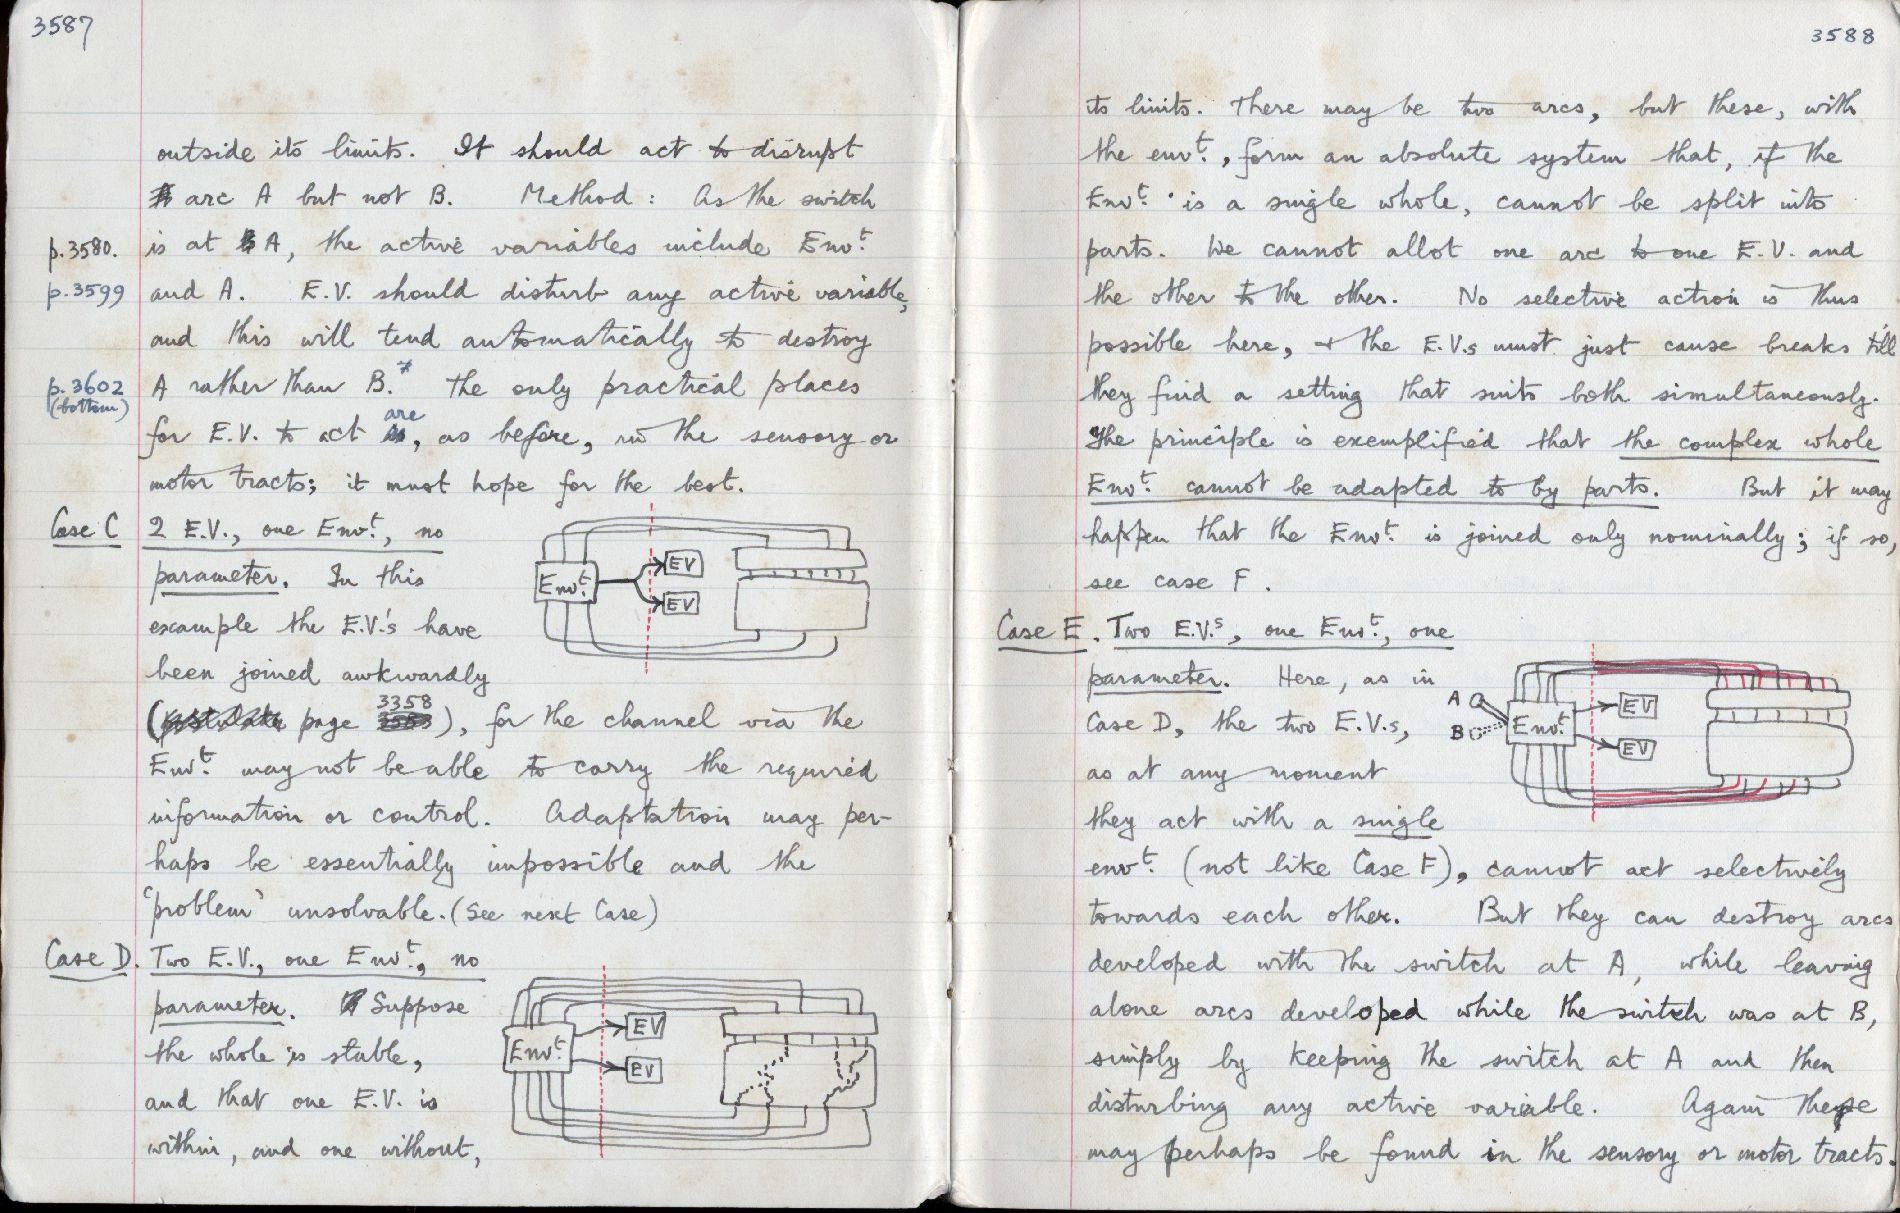 3587
outside its limits. It should act to disrupt
arc A but not B. Method: As the switch
p.3580. is at A, the active variables include Envt.
p.3599 and A. E.V. should disturb any active variable,
and this will tend automatically to destroy
p.3602 A rather than B.* The only practical places
(bottom)
for E.V. to act are, as before, in the sensory or
motor tracts; it must hope for the best.
Case C 2 E.V., one Envt., no
parameter. In this
example the E.V.'s have
been joined awkwardly
(page 3358), for the channel via the
Envt. may not be able to carry the required
information or control. Adaptation may per-
haps be essentially impossible and the
'problem' unsolvable. (See next Case)
Case D. Two E.V., one Envt., no
parameter. Suppose
the whole is stable,
and that one E.V. is
within, and one without,
Envt.
EV
EV
Envt.
EV
EV
3588
its limits. There may be two arcs, but these, with
the envt., form an absolute system that, if the
Envt. is a single whole, cannot be split into
parts. We cannot allot one arc to one E.V. and
the other to the other. No selective action is thus
possible here, + the E.V.s must just cause breaks till
they find a setting that suits both simultaneously.
The principle is exemplified that the complex whole
Envt. cannot be adapted to by parts. But it may
happen that the Envt. is joined only nominally; if so,
see case F.
Case E. Two E.V.s, one Envt., one
parameter. Here, as in
Case D, the two E.V.s,
as at any moment
they act with a single
envt. (not like Case F), cannot act selectively
towards each other. But they can destroy arcs
developed with the switch at A, while leaving
alone arcs developed while the switch was at B,
simply by keeping the switch at A and then
disturbing any active variable. Again these
may perhaps be found in the sensory or motor tracts.
A
B
Envt.
EV
EV